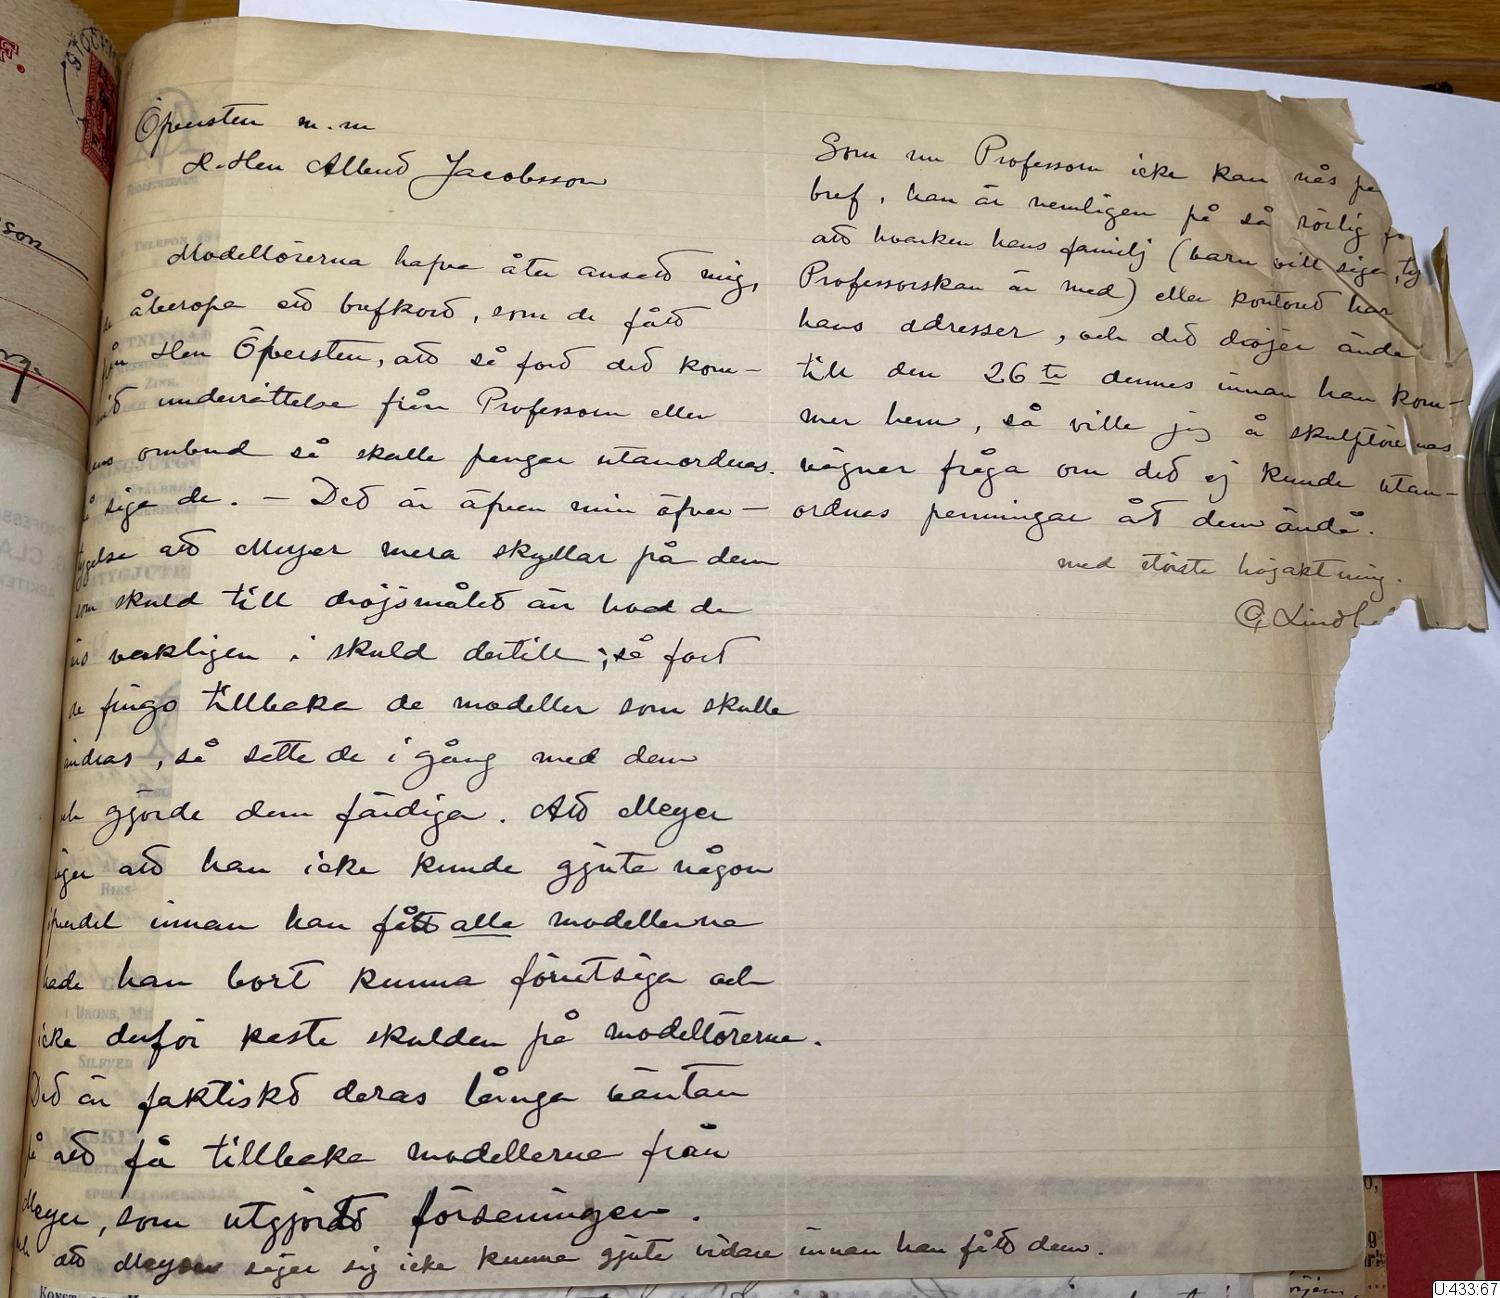 Öfversten m.m
H. Herr Albert Jacobsson
Modellörerna hafva åter ansatt mig,
åberopa ett brefkort, som de fått
från Herr Öfversten, att så fort det kom-
mit underrättelse från Professorn eller
ombud så skulle pengar utanordnas.
säga de. — Det är äfven min öfver-
tygelse att Meyer mera skyllar på dem
som skuld till dröjsmålet än hvad de
verkligen i skuld dertill; så fort
de fingo tillbaka de modeller som skulle
ändras, så satte de i gång med dem
och gjorde dem färdiga. Att Meyer
säger att han icke kunde gjuta någon
innan han fått alla modellerna
hade han bort kunna förutsäga och
icke derför kasta skulden på modellörerna.
Det är faktiskt deras långa väntan
på att få tillbaka modellerna från
Meyer, som utgjordt förseningen.
och att Meyer säger sig icke kunna gjuta vidare innan han fått dem.
Som nu Professorn icke kan nås per
bref, han är nemligen på så rörlig
att hvarken hans familj (barn vill säga, ty
Professorskan är med) eller kontoret har
hans adresser, och det dröjer ända
till den 26te dennes innan han kom-
mer hem, så ville jag å skulptörernas
vägnar fråga om det ej kunde utan-
ordnas penningar åt dem ändå.
med största högaktning.
G Lindb
TELEFON
ZINK,
RIKS-
BRONS,
SILFVER
MASKIN
KONST-
PROFESSOR
G. CLA
ARKITEKT
son
U:433:67